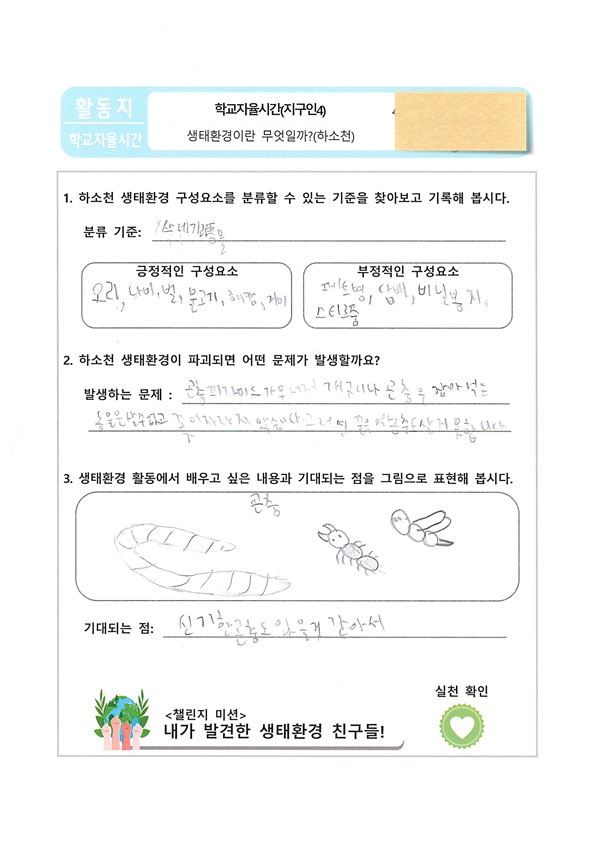 활동지
학교자율시간
학교자율시간(지구인4)
생태환경이란 무엇일까?(하소천)
1. 하소천 생태환경 구성요소를 분류할 수 있는 기준을 찾아보고 기록해 봅시다.
분류 기준:
긍정적인 구성요소
오리, 나비, 벌, 물고기, 거미
부정적인 구성요소
페트병, 담배, 비닐봉지,
스티로폼
2. 하소천 생태환경이 파괴되면 어떤 문제가 발생할까요?
발생하는 문제 : 곤충피라미드가 무너져 개구리나 곤충을 잡아먹는
동물은 살수없고 꽃이 자라지 않습니다 그러면 꿀을 먹는 곤충도 살지 못합니다
3. 생태환경 활동에서 배우고 싶은 내용과 기대되는 점을 그림으로 표현해 봅시다.
곤충
기대되는 점: 신기한 곤충도 있을거 같아서
실천 확인
<챌린지 미션>
내가 발견한 생태환경 친구들!